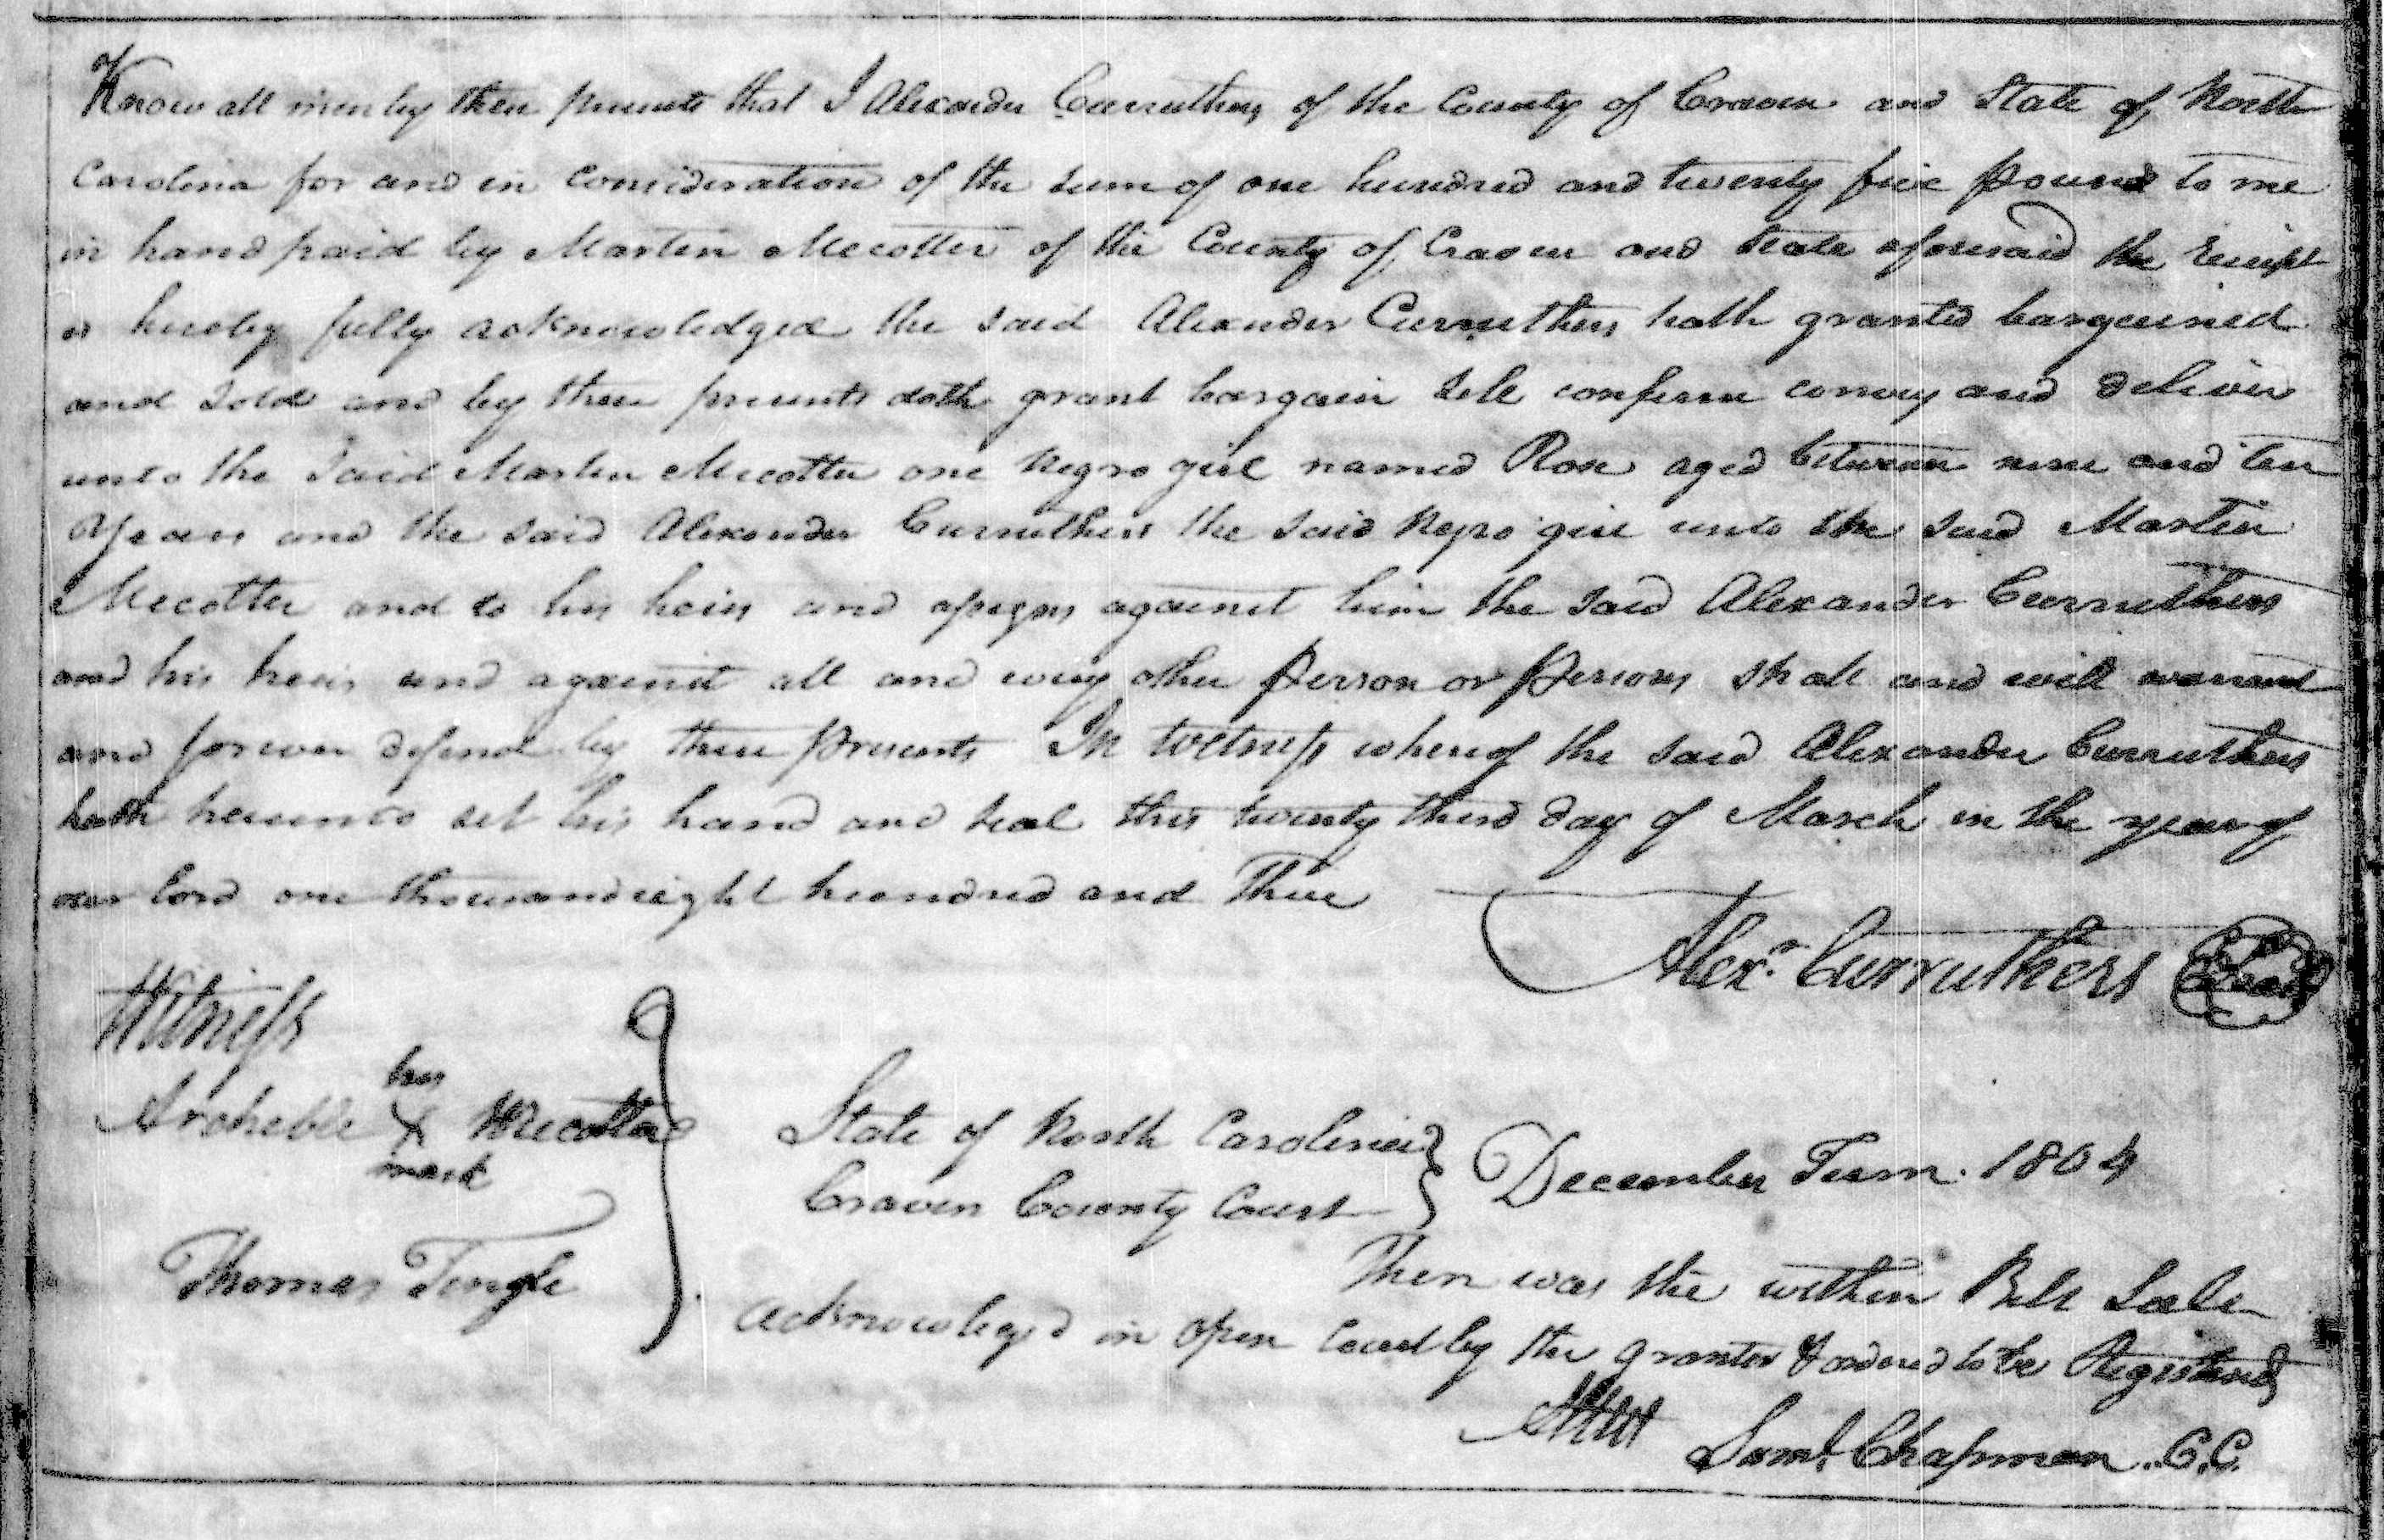 Know all men by these presents that I Alexander Carruthers of the County of Craven and State of North
Carolina for and in consideration of the sum of one hundred and twenty five pound to me
in hand paid by Martin Mecotter of the County of Craven and State aforesaid the receipt
is hereby fully acknowledged the said Alexander Curruthers hath granted bargained
and sold and by these presents doth grant bargain Sele confirm convey and deliver
unto the said Martin Mecotter one Negro girl named Rose aged between nine and ten
Years and the said Alexander Curruthers the said Negro girl unto the said Martin
Mecotter and to his heirs and assigns against him the said Alexander Curruthers
and his heirs and against all and every other person or persons shall and will warrant
and forever defend by these presents In Witness whereof the said Alexander Curruthers
hath hereunto set his hand and seal this twenty third day of March in the year of
our Lord one thousand eight hundred and Three
Alexr. Curruthers Seal
Witness
his
Archeble X Mecotter
mark
Thomas Tingle
State of North Carolina } December Term. 1804
Craven County Court
Then was the within Bill Sale
acknowleged in open Court by the grantor & ordered to be Registered
Attest
Saml. Chapman. C.C.